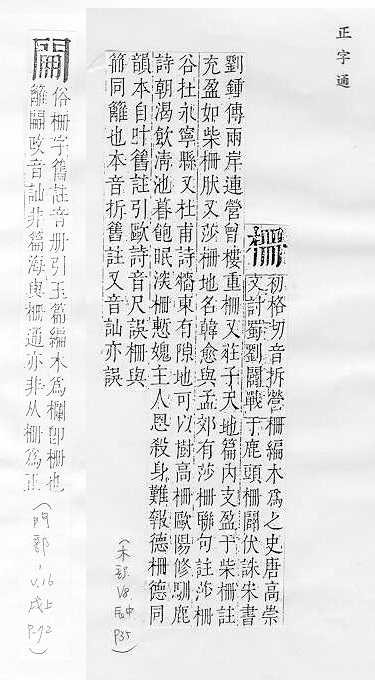 正字通
柵
初格切音拆營柵編木為之史唐高崇
文討蜀劉闢戰于鹿頭柵闢伏誅宋書
劉鍾傳兩岸連營曾樓重柵又莊子天地篇内支盈于柴柵註
充盈如柴柵狀又莎柵地名韓愈與孟郊有莎柵聯句註莎柵
谷在永寧縣又杜甫詩牆東有隙地可以樹高柵歐陽修馴鹿
詩朝渴飲清池暮飽眠深柵慙媿主人恩殺身難報德柵德同
韻本自叶舊註引歐詩音尺誤柵與
箝同籬也本音拆舊註又音訕亦誤
(木部 V8
辰中
P35)
俗柵字舊註音册引玉篇編木為欄即柵也
籬闢改音訕非篇海與柵通亦非从柵為正
(門部,
V.16
戌上
P.92)